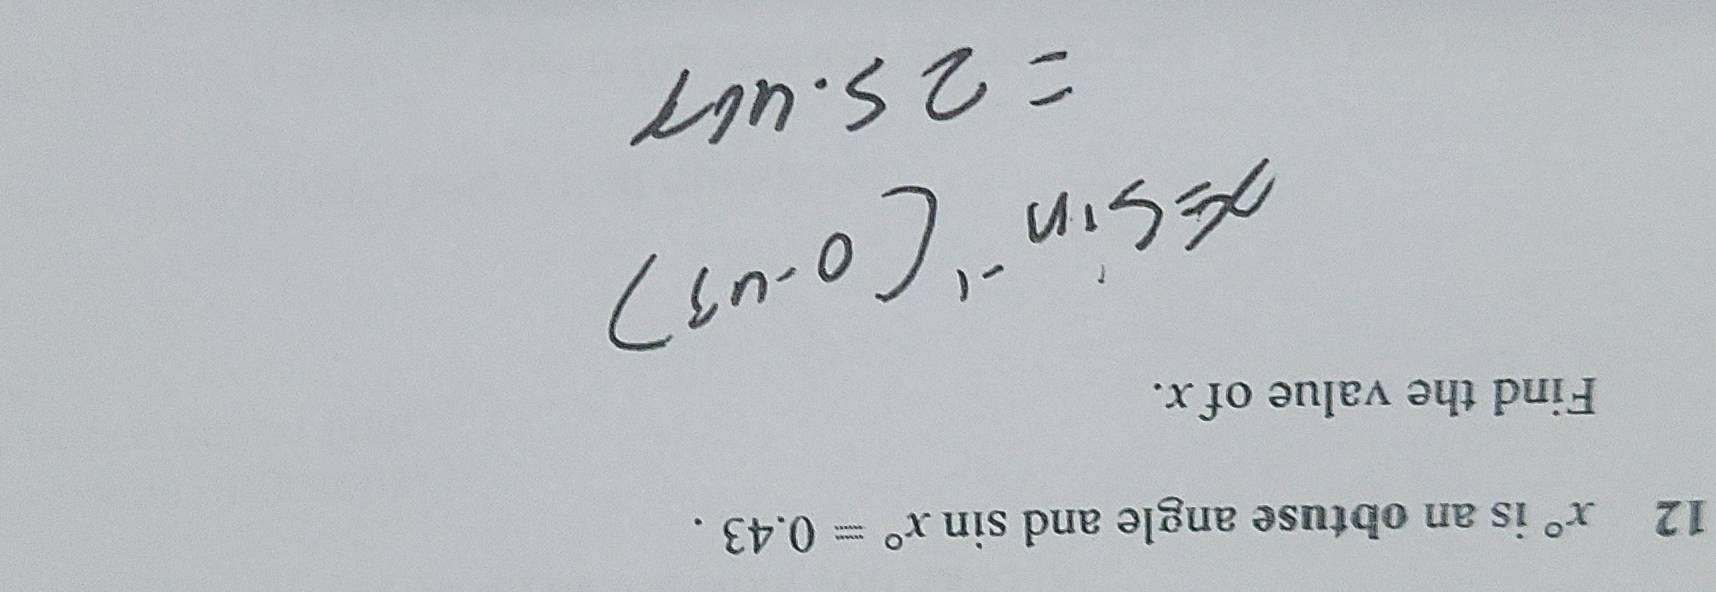 12 x° is an obtuse angle and sin x° = 0.43 .
Find the value of x.
x=sin⁻¹(0.43)
= 25.467